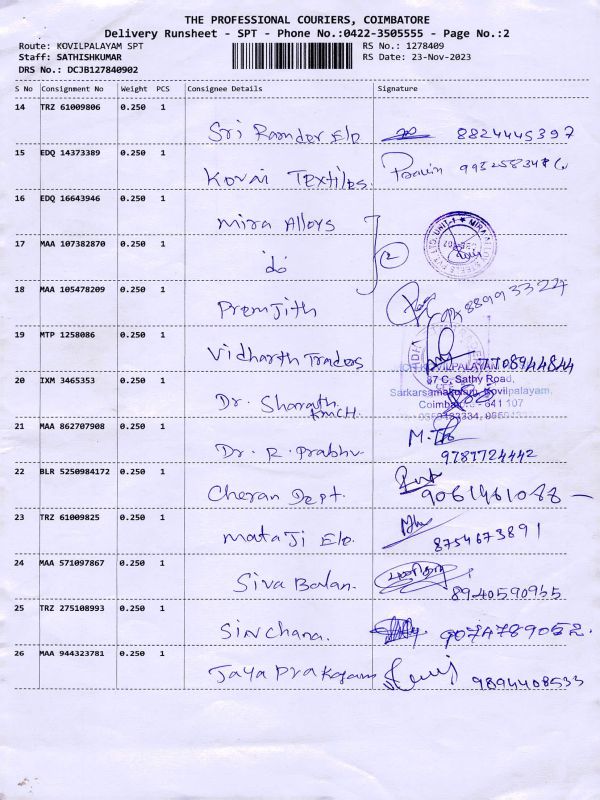 THE PROFESSIONAL COURIERS, COIMBATORE
Delivery Runsheet - SPT - Phone No.:0422-3505555 - Page No.:2
Route: KOVILPALAYAM SPT
RS No.: 1278409
Staff: SATHISHKUMAR
RS Date: 23-Nov-2023
DRS No.: DCJB127840902
S No Consignment No Weight PCS Consignee Details Signature
14 TRZ 61009806 0.250 1
Sri Ramdev Ele 8824445397
15 EDQ 14373389 0.250 1
Kovai Textiles. Pravin
16 EDQ 16643946 0.250 1
Mira Alloys
17 MAA 107382870 0.250 1
do 2
18 MAA 105478209 0.250 1
Premjith
19 MTP 1258086 0.250 1
Vidharth Traders 7708944844
KOVILPALAYAM
67 C, Sathy Road,
20 IXM 3465353 0.250 1
Sarkarsamakulam, Kovilpalayam,
Dr. Sharath KMCH.
21 MAA 862707908 0.250 1
Dr. R. Prabhu. 9787724442
22 BLR 5250984172 0.250 1
Cheran Dept. 9061461088
23 TRZ 61009825 0.250 1
Mataji Ele. 8754673891
24 MAA 571097867 0.250 1
Siva Balan. 8940590955
25 TRZ 275108993 0.250 1
Sinchana. 9074789052.
26 MAA 944323781 0.250 1
Jaya Prakasam 9894408533